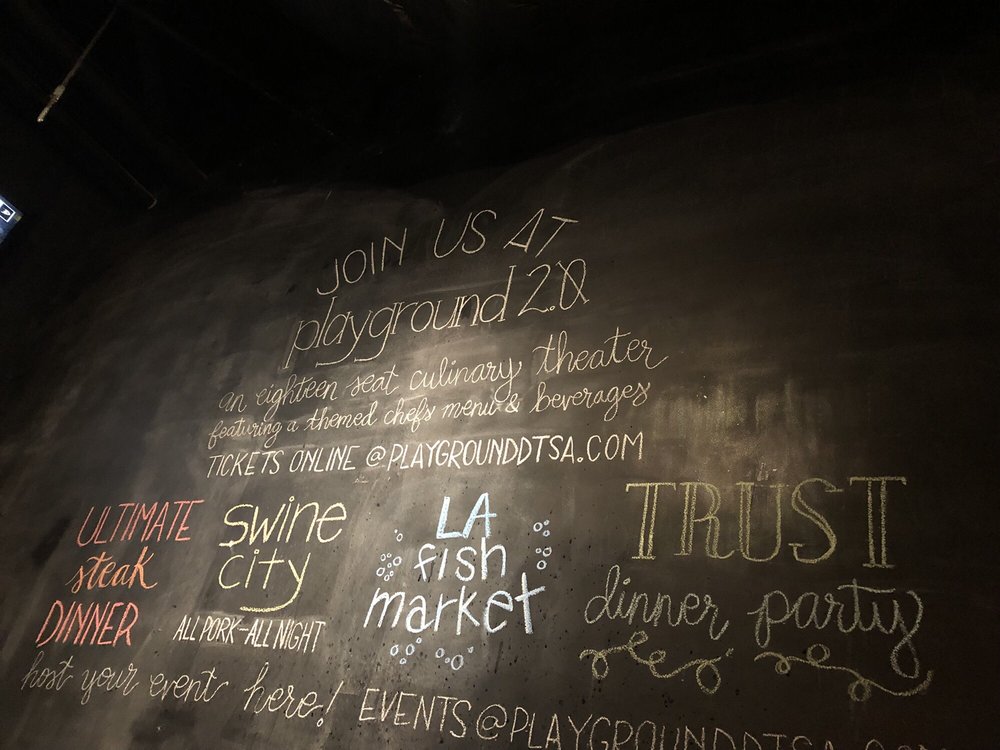 JOIN US AT
playground 2.0
an eighteen seat culinary theater
featuring a themed chefs menu & beverages
TICKETS ONLINE @PLAYGROUNDDTSA.COM
ULTIMATE
steak
DINNER
swine
city
ALL PORK-ALL NIGHT
LA
fish
market
TRUST
dinner party
host your event here! EVENTS@PLAYGROUNDDTSA.